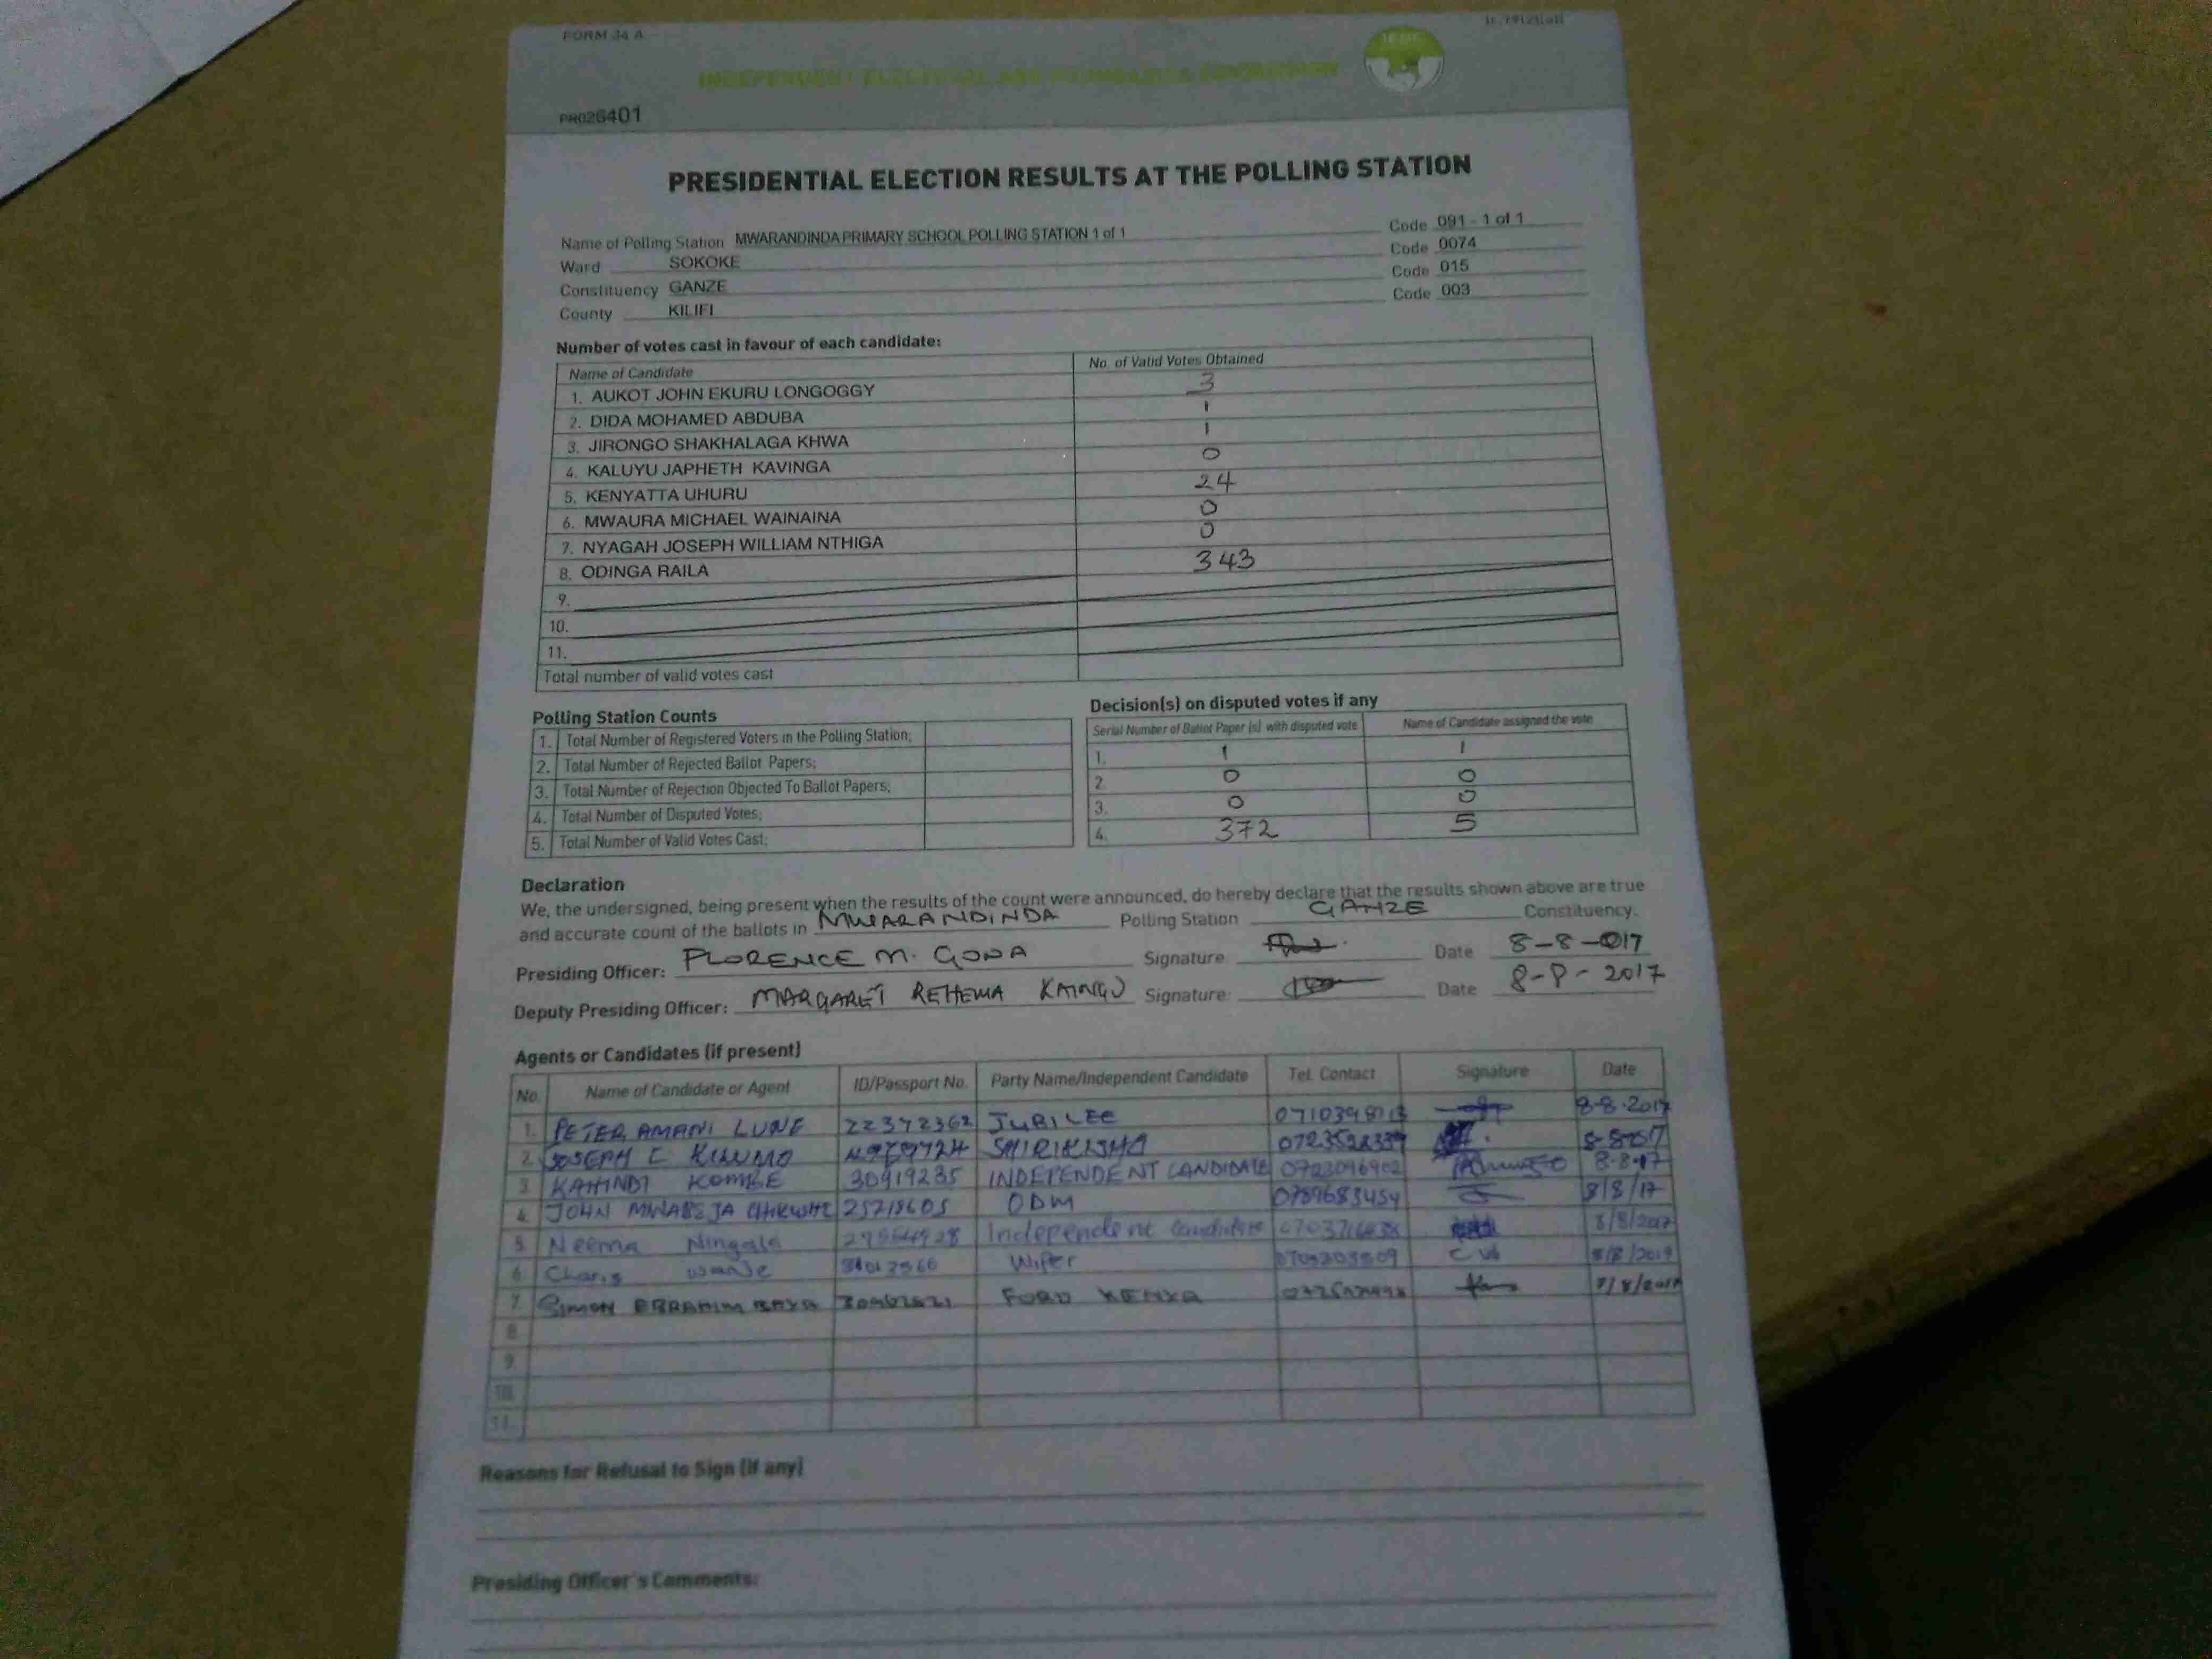 FORM 34 A
INDEPENDENT ELECTORAL AND BOUNDARIES COMMISSION
IEBC
PR026401
PRESIDENTIAL ELECTION RESULTS AT THE POLLING STATION
Name of Polling Station MWARANDINDA PRIMARY SCHOOL POLLING STATION 1 of 1 Code 091 - 1 of 1
Ward SOKOKE Code 0074
Constituency GANZE Code 015
County KILIFI Code 003
Number of votes cast in favour of each candidate:
Name of Candidate No. of Valid Votes Obtained
1. AUKOT JOHN EKURU LONGOGGY 3
2. DIDA MOHAMED ABDUBA 1
3. JIRONGO SHAKHALAGA KHWA 1
4. KALUYU JAPHETH KAVINGA 0
5. KENYATTA UHURU 24
6. MWAURA MICHAEL WAINAINA 0
7. NYAGAH JOSEPH WILLIAM NTHIGA 0
8. ODINGA RAILA 343
9.
10.
11.
Total number of valid votes cast
Polling Station Counts
1. Total Number of Registered Voters in the Polling Station;
2. Total Number of Rejected Ballot Papers;
3. Total Number of Rejection Objected To Ballot Papers;
4. Total Number of Disputed Votes;
5. Total Number of Valid Votes Cast;
Decision(s) on disputed votes if any
Serial Number of Ballot Paper (s) with disputed vote Name of Candidate assigned the vote
1. 1 1
2. 0 0
3. 0 0
4. 372 5
Declaration
We, the undersigned, being present when the results of the count were announced, do hereby declare that the results shown above are true
and accurate count of the ballots in MWARANDINDA Polling Station GANZE Constituency.
Presiding Officer: FLORENCE M. GONA Signature: Date 8-8-017
Deputy Presiding Officer: MARGARET REHEMA KAINGU Signature: Date 8-8-2017
Agents or Candidates (if present)
No. Name of Candidate or Agent ID/Passport No. Party Name/Independent Candidate Tel. Contact Signature Date
1. PETER AMANI LUNE 22372362 JUBILEE 8-8-2017
2. JOSEPH
3. KAHINDI KOMBE 30919235 INDEPENDENT CANDIDATE 0723096902 8-8-17
4. JOHN 25718605 ODM 0789683454 8/8/17
5. Neema Independent candidate 8/8/2017
6. Charis Wanje Wiper
7. SIMON EBRAHIM BAYA FORD KENYA
8
9
10
11
Reasons for Refusal to Sign (if any)
Presiding Officer's Comments: